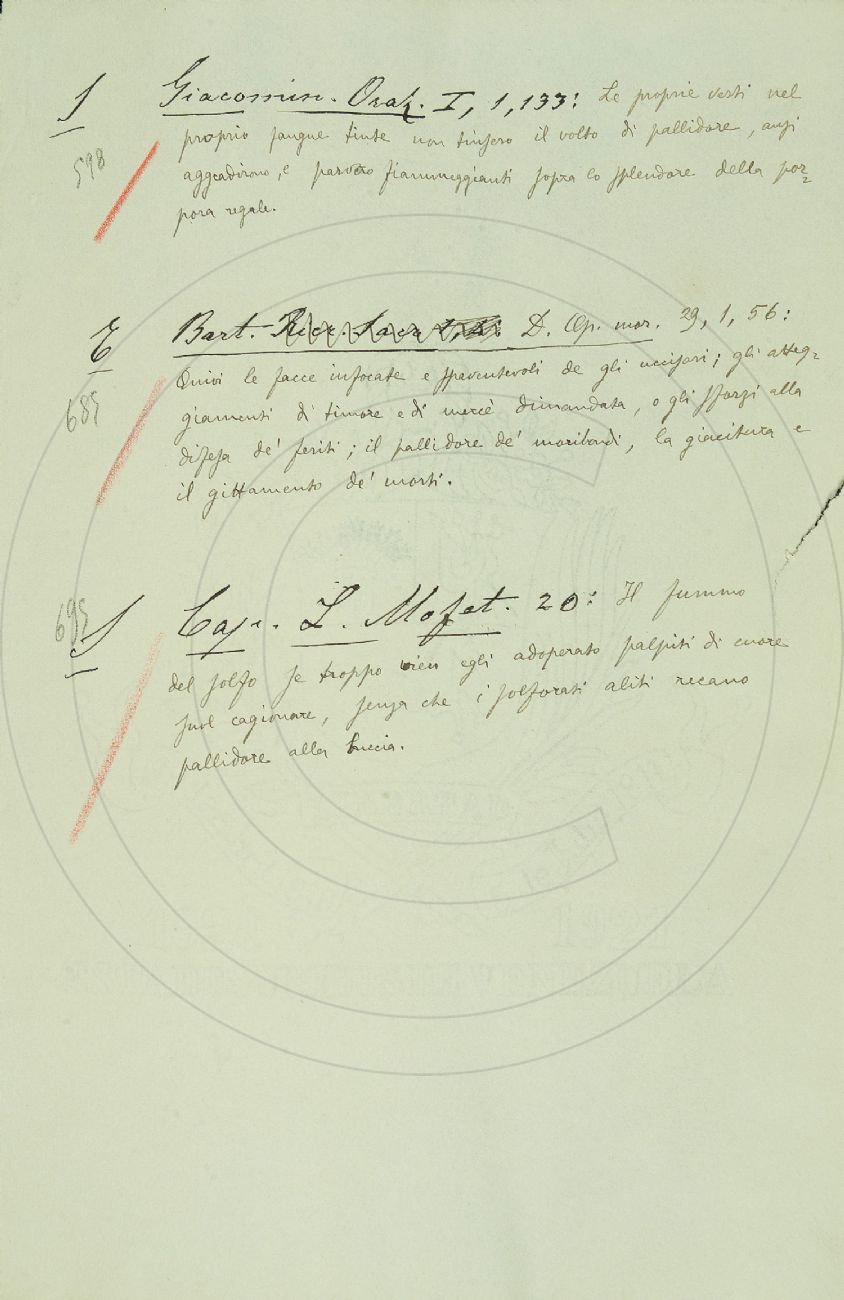 S Giacomin. Oraz. I, 1, 133: Le proprie vesti nel
598 proprio sangue tinte non tinsero il volto di pallidore, anzi
aggradirono, e parvero fiammeggianti sopra lo splendore della por=
pora regale.
E Bart. D. Op. mor. 29, 1, 56:
685 Quivi le facce infocate e spaventevoli de gli uccisori; gli atteg=
giamenti di timore e di mercè dimandata, o gli sforzi alla
difesa de' feriti; il pallidore de' moribondi, la giacitura e
il gittamento de' morti.
695
S Cap. L. Mofet. 20: Il fummo
del solfo se troppo vien egli adoperato palpiti di cuore
suol cagionare, senza che i solforati aliti recano
pallidore alla buccia.